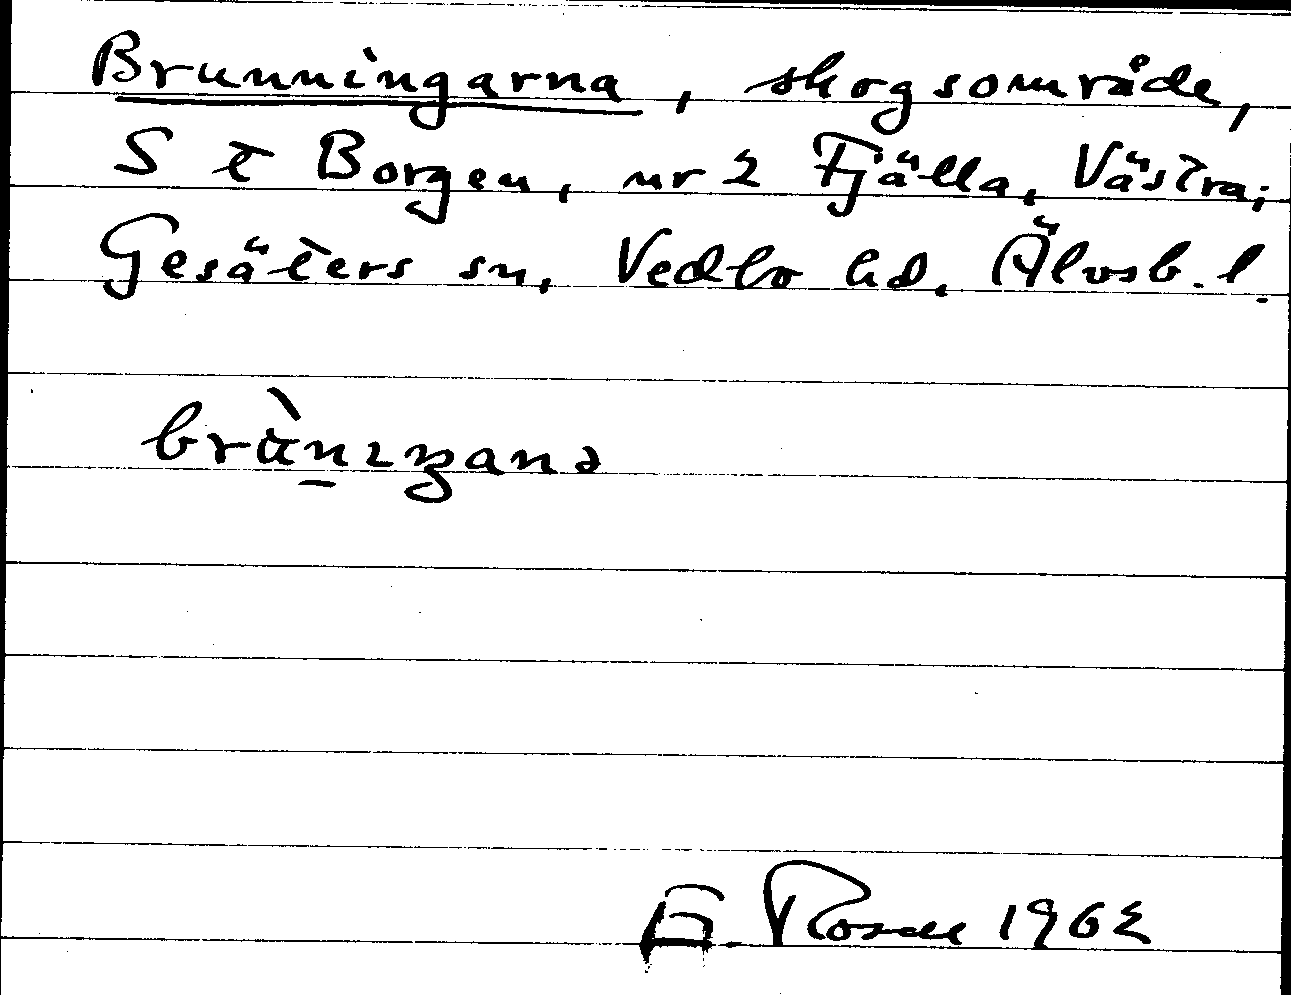 Brunningarna, skogsområde,
S t Borgen, nr 2 Fjälla, Västra;
Gesäters sn, Vedbo hd. Älvsb. l.
brùnɩŋanə
E. Rosell 1962